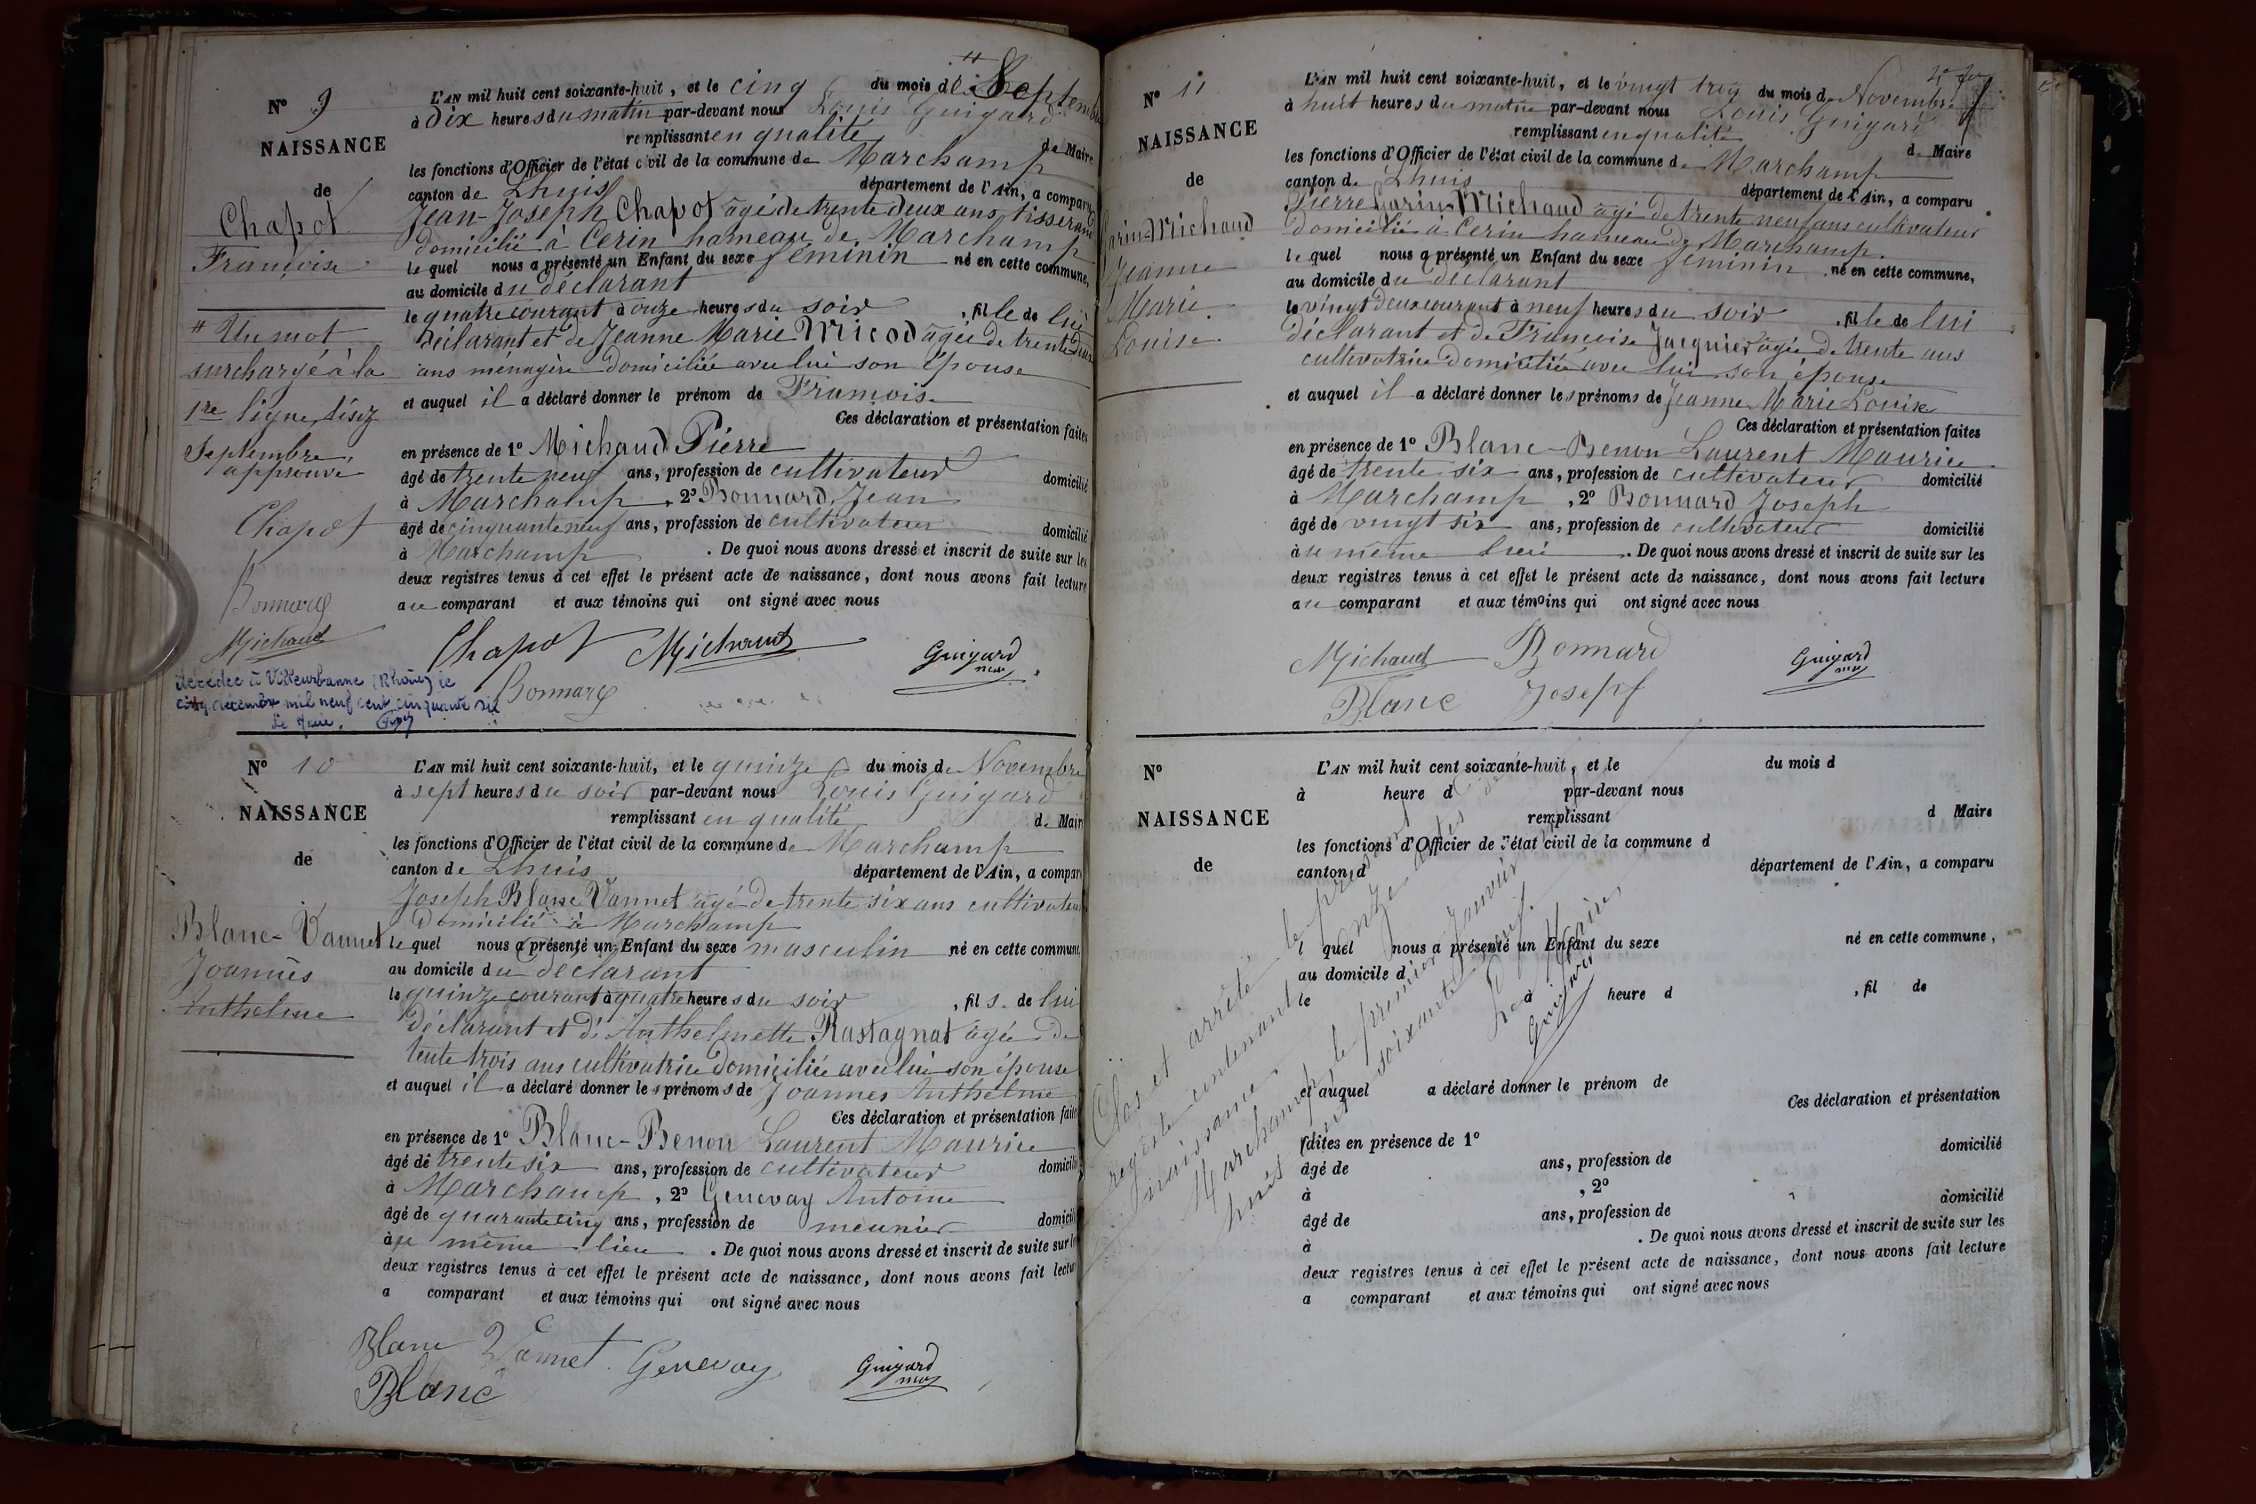 N° 9
NAISSANCE
de
Chapot
Françoise
# Un mot
surchargé à la
1re ligne, lisez
Septembre,
approuvé
Chapot
Bonnard
Michaud
décédée à Villeurbanne (Rhône) le
cinq décembre mil neuf cent cinquante six
Le Maire.
L'AN mil huit cent soixante-huit, et le cinq du mois de # Septembre
à dix heures du matin par-devant nous Louis Guigard
remplissant en qualité de Maire
les fonctions d'Officier de l'état civil de la commune de Marchamp
canton de Lhuis département de l'Ain, a comparu
Jean-Joseph Chapot âgé de trente deux ans tisserand
domicilié à Cerin hameau de Marchamp
lequel nous a présenté un Enfant du sexe féminin né en cette commune,
au domicile du déclarant
le quatre courant à onze heures du soir, fille de lui
déclarant et de Jeanne Marie Micod âgée de trente deux
ans ménagère domiciliée avec lui son épouse
et auquel il a déclaré donner le prénom de Françoise
Ces déclaration et présentation faites
en présence de 1° Michaud Pierre
âgé de trente neuf ans, profession de cultivateur domicilié
à Marchamp, 2° Bonnard Jean
âgé de cinquante neuf ans, profession de cultivateur domicilié
à Marchamp. De quoi nous avons dressé et inscrit de suite sur les
deux registres tenus à cet effet le présent acte de naissance, dont nous avons fait lecture
au comparant et aux témoins qui ont signé avec nous
Chapot Michaud Guigard
Bonnard
N° 10
NAISSANCE
de
Blanc-Vannet
Joannès
Anthelme
L'AN mil huit cent soixante-huit, et le quinze du mois de Novembre
à sept heures du soir par-devant nous Louis Guigard
remplissant en qualité de Maire
les fonctions d'Officier de l'état civil de la commune de Marchamp
canton de Lhuis département de l'Ain, a comparu
Joseph Blanc Vannet âgé de trente six ans cultivateur
domicilié à Marchamp
lequel nous a présenté un Enfant du sexe masculin né en cette commune,
au domicile du déclarant
le quinze courant à quatre heures du soir, fils de lui
déclarant et de Anthelmette Rastagnat âgée de
tente trois ans cultivatrice domiciliée avec lui son épouse
et auquel il a déclaré donner les prénoms de Joannes Anthelme
Ces déclaration et présentation faites
en présence de 1° Blanc-Benon Laurent Maurice
âgé de trente six ans, profession de cultivateur domicilié
à Marchamp, 2° Genevay Antoine
âgé de quarante cinq ans, profession de meunier domicilié
au même lieu. De quoi nous avons dressé et inscrit de suite sur les
deux registres tenus à cet effet le présent acte de naissance, dont nous avons fait lecture
a comparant et aux témoins qui ont signé avec nous
Blanc Vannet Genevay Guigard
Blanc
N° 11
NAISSANCE
de
Garin-Michaud
Jeanne
Marie
Louise
L'AN mil huit cent soixante-huit, et le vingt trois du mois de Novembre
à huit heures du matin par-devant nous Louis Guigard
remplissant en qualité de Maire
les fonctions d'Officier de l'état civil de la commune de Marchamp
canton de Lhuis département de l'Ain, a comparu
Pierre Garin-Michaud âgé de trente neuf ans cultivateur
domicilié à Cerin hameau de Marchamp
lequel nous a présenté un Enfant du sexe féminin né en cette commune,
au domicile du déclarant
le vingt deux courant à neuf heures du soir, fille de lui
déclarant et de Françoise Jacquier âgée de trente ans
cultivatrice domiciliée avec lui son épouse
et auquel il a déclaré donner les prénoms de Jeanne Marie Louise
Ces déclaration et présentation faites
en présence de 1° Blanc-Benon Laurent Maurice
âgé de trente six ans, profession de cultivateur domicilié
à Marchamp, 2° Bonnard Joseph
âgé de vingt six ans, profession de cultivateur domicilié
au même lieu. De quoi nous avons dressé et inscrit de suite sur les
deux registres tenus à cet effet le présent acte de naissance, dont nous avons fait lecture
au comparant et aux témoins qui ont signé avec nous
Michaud Bonnard Guigard
Blanc Joseph
N°
NAISSANCE
de
L'AN mil huit cent soixante-huit, et le du mois d
à heure d par-devant nous
remplissant d Maire
les fonctions d'Officier de l'état civil de la commune d
canton d département de l'Ain, a comparu
l quel nous a présenté un Enfant du sexe né en cette commune,
au domicile d
le à heure d, fil de
et auquel a déclaré donner le prénom de
Ces déclaration et présentation
faites en présence de 1°
âgé de ans, profession de domicilié
à, 2°
âgé de ans, profession de domicilié
à. De quoi nous avons dressé et inscrit de suite sur les
deux registres tenus à cet effet le présent acte de naissance, dont nous avons fait lecture
a comparant et aux témoins qui ont signé avec nous
Clos et arrêté le présent
registre contenant onze actes de
naissance.
Marchamp, le premier Janvier
huit cent soixante neuf.
Le Maire,
Guigard